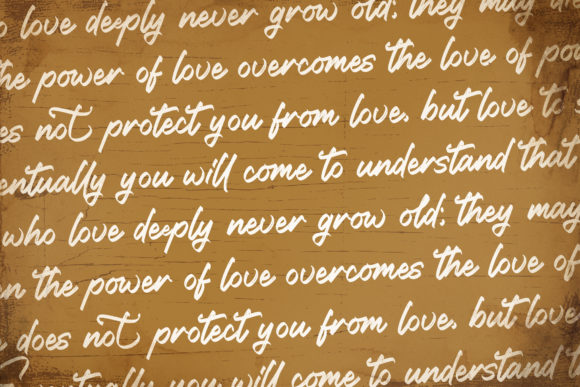 o love deeply never grow old: they may di
the power of love overcomes the love of po
es not protect you from love. but love to
entually you will come to understand that
who love deeply never grow old: they may
n the power of love overcomes the love of
does not protect you from love. but love
entually you will come to understand t